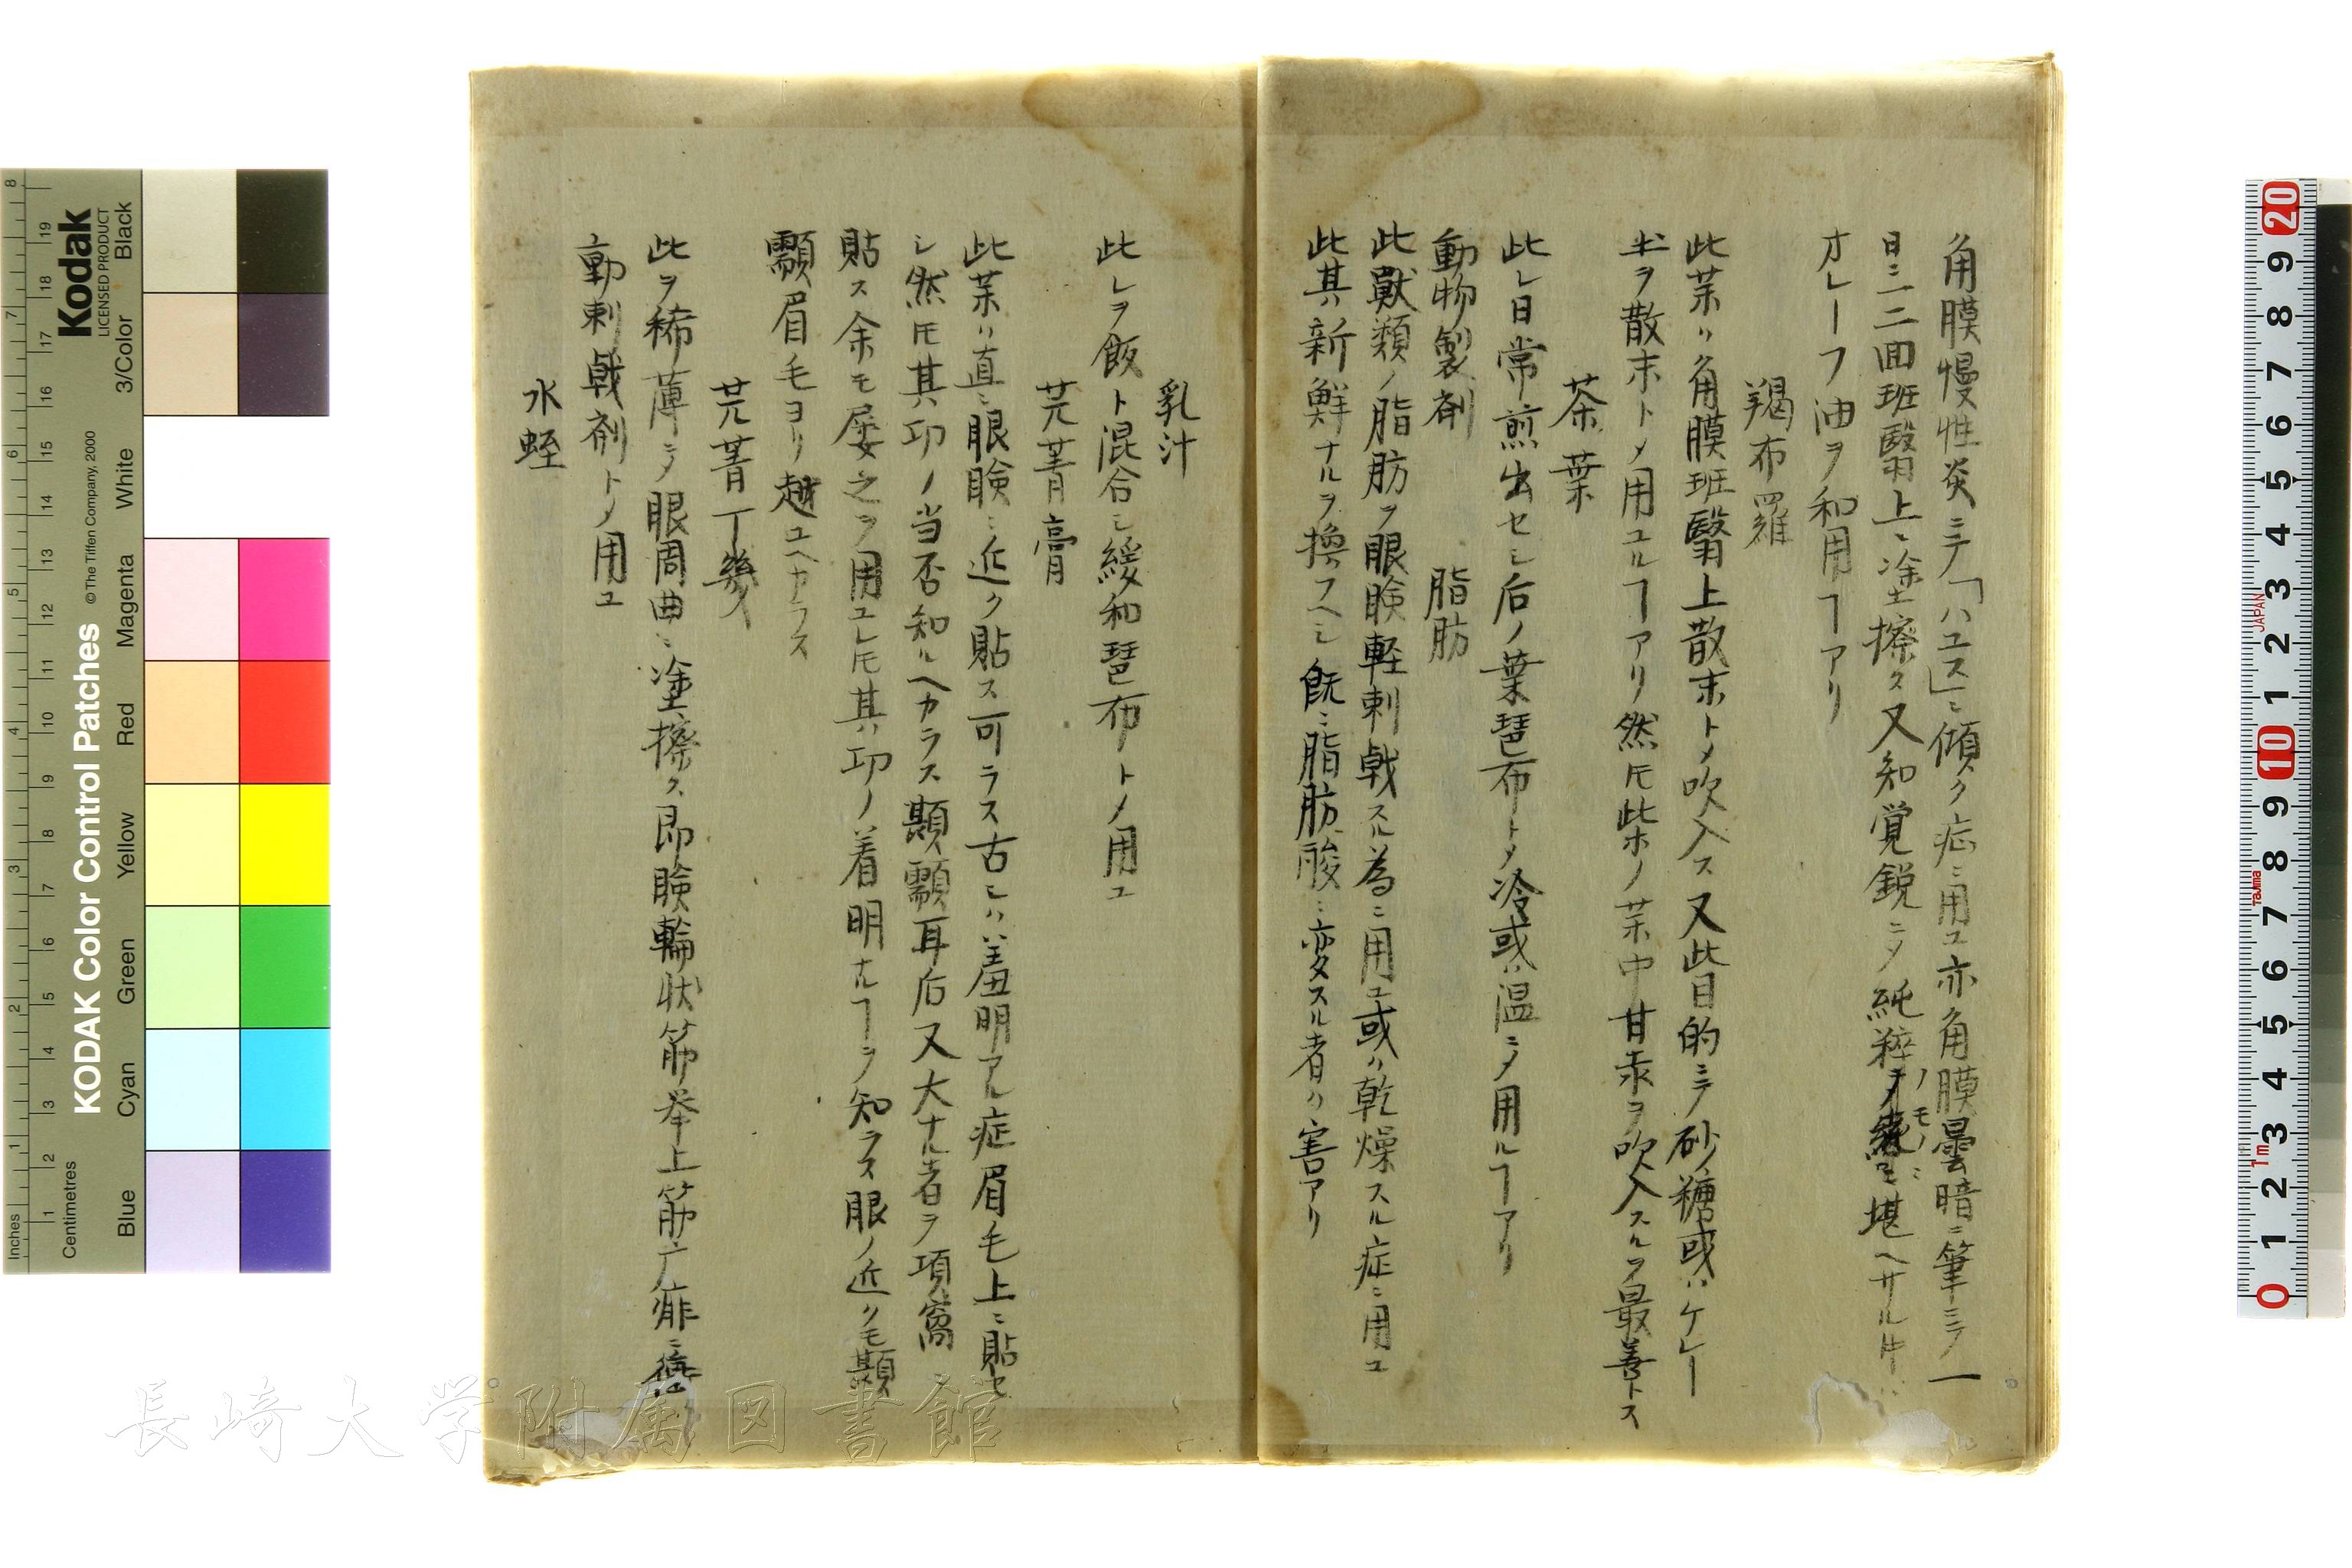 角膜慢性炎ニテ「ハユス」ニ傾ク症ニ用ユ亦角膜曇暗ニ筆ニテ一
日ニ二三回斑翳上ニ塗擦ス又知覚鋭ニメ純粋ノモノニ堪ヘサル牛ハ
オレーフ油ヲ和用ヿアリ
羯布羅
此葉ハ角膜斑翳上散末トメ吹入ス又此目的ニテ砂糖或ハケレー
ヰヲ散末トメ用ユルヿアリ然𪜈此ノ葉中甘汞ヲ吹入スルヲ最善トス
茶葉
此レ日常煎出セシ后ノ葉琶布トメ冷或ハ温ニメ用ルヿアリ
動物製剤
脂肪
此獣類ノ脂肪ヲ眼瞼軽刺戟スル為ニ用ユ或ハ乾燥スル症ニ用ユ
此其新鮮ナルヲ換フヘシ既ニ脂肪酸ニ変スル者ハ害アリ
乳汁
此レヲ飯ト混合シ緩和琶布トメ用ユ
芫菁膏
此葉ハ直ニ眼瞼ニ近ク貼ス可ラス古シハ羞明アル症眉毛上ニ貼セ
シ然𪜈其功ノ当否知ルヘカラス顳顬耳后又大ナル者ヲ項窩ニ
貼ス余モ屡之ヲ用ユレ𪜈其功ノ着明ナルヿヲ知ラス眼ノ近クモ顳
顬眉毛ヨリ越ユヘカラス
芫菁丁幾
此ヲ稀薄ニメ眼周曲ニ塗擦ス即瞼輪状筋挙上筋ノ痱ニ
動刺戟剤トメ用ユ
水蛭
Kodak
LICENSED PRODUCT
KODAK Color Control Patches
© The Tiffen Company, 2000
Inches
Centimetres
Blue
Cyan
Green
Yellow
Red
Magenta
White
3/Color
Black
JAPAN
Tajima
1m
長崎大学附属図書館